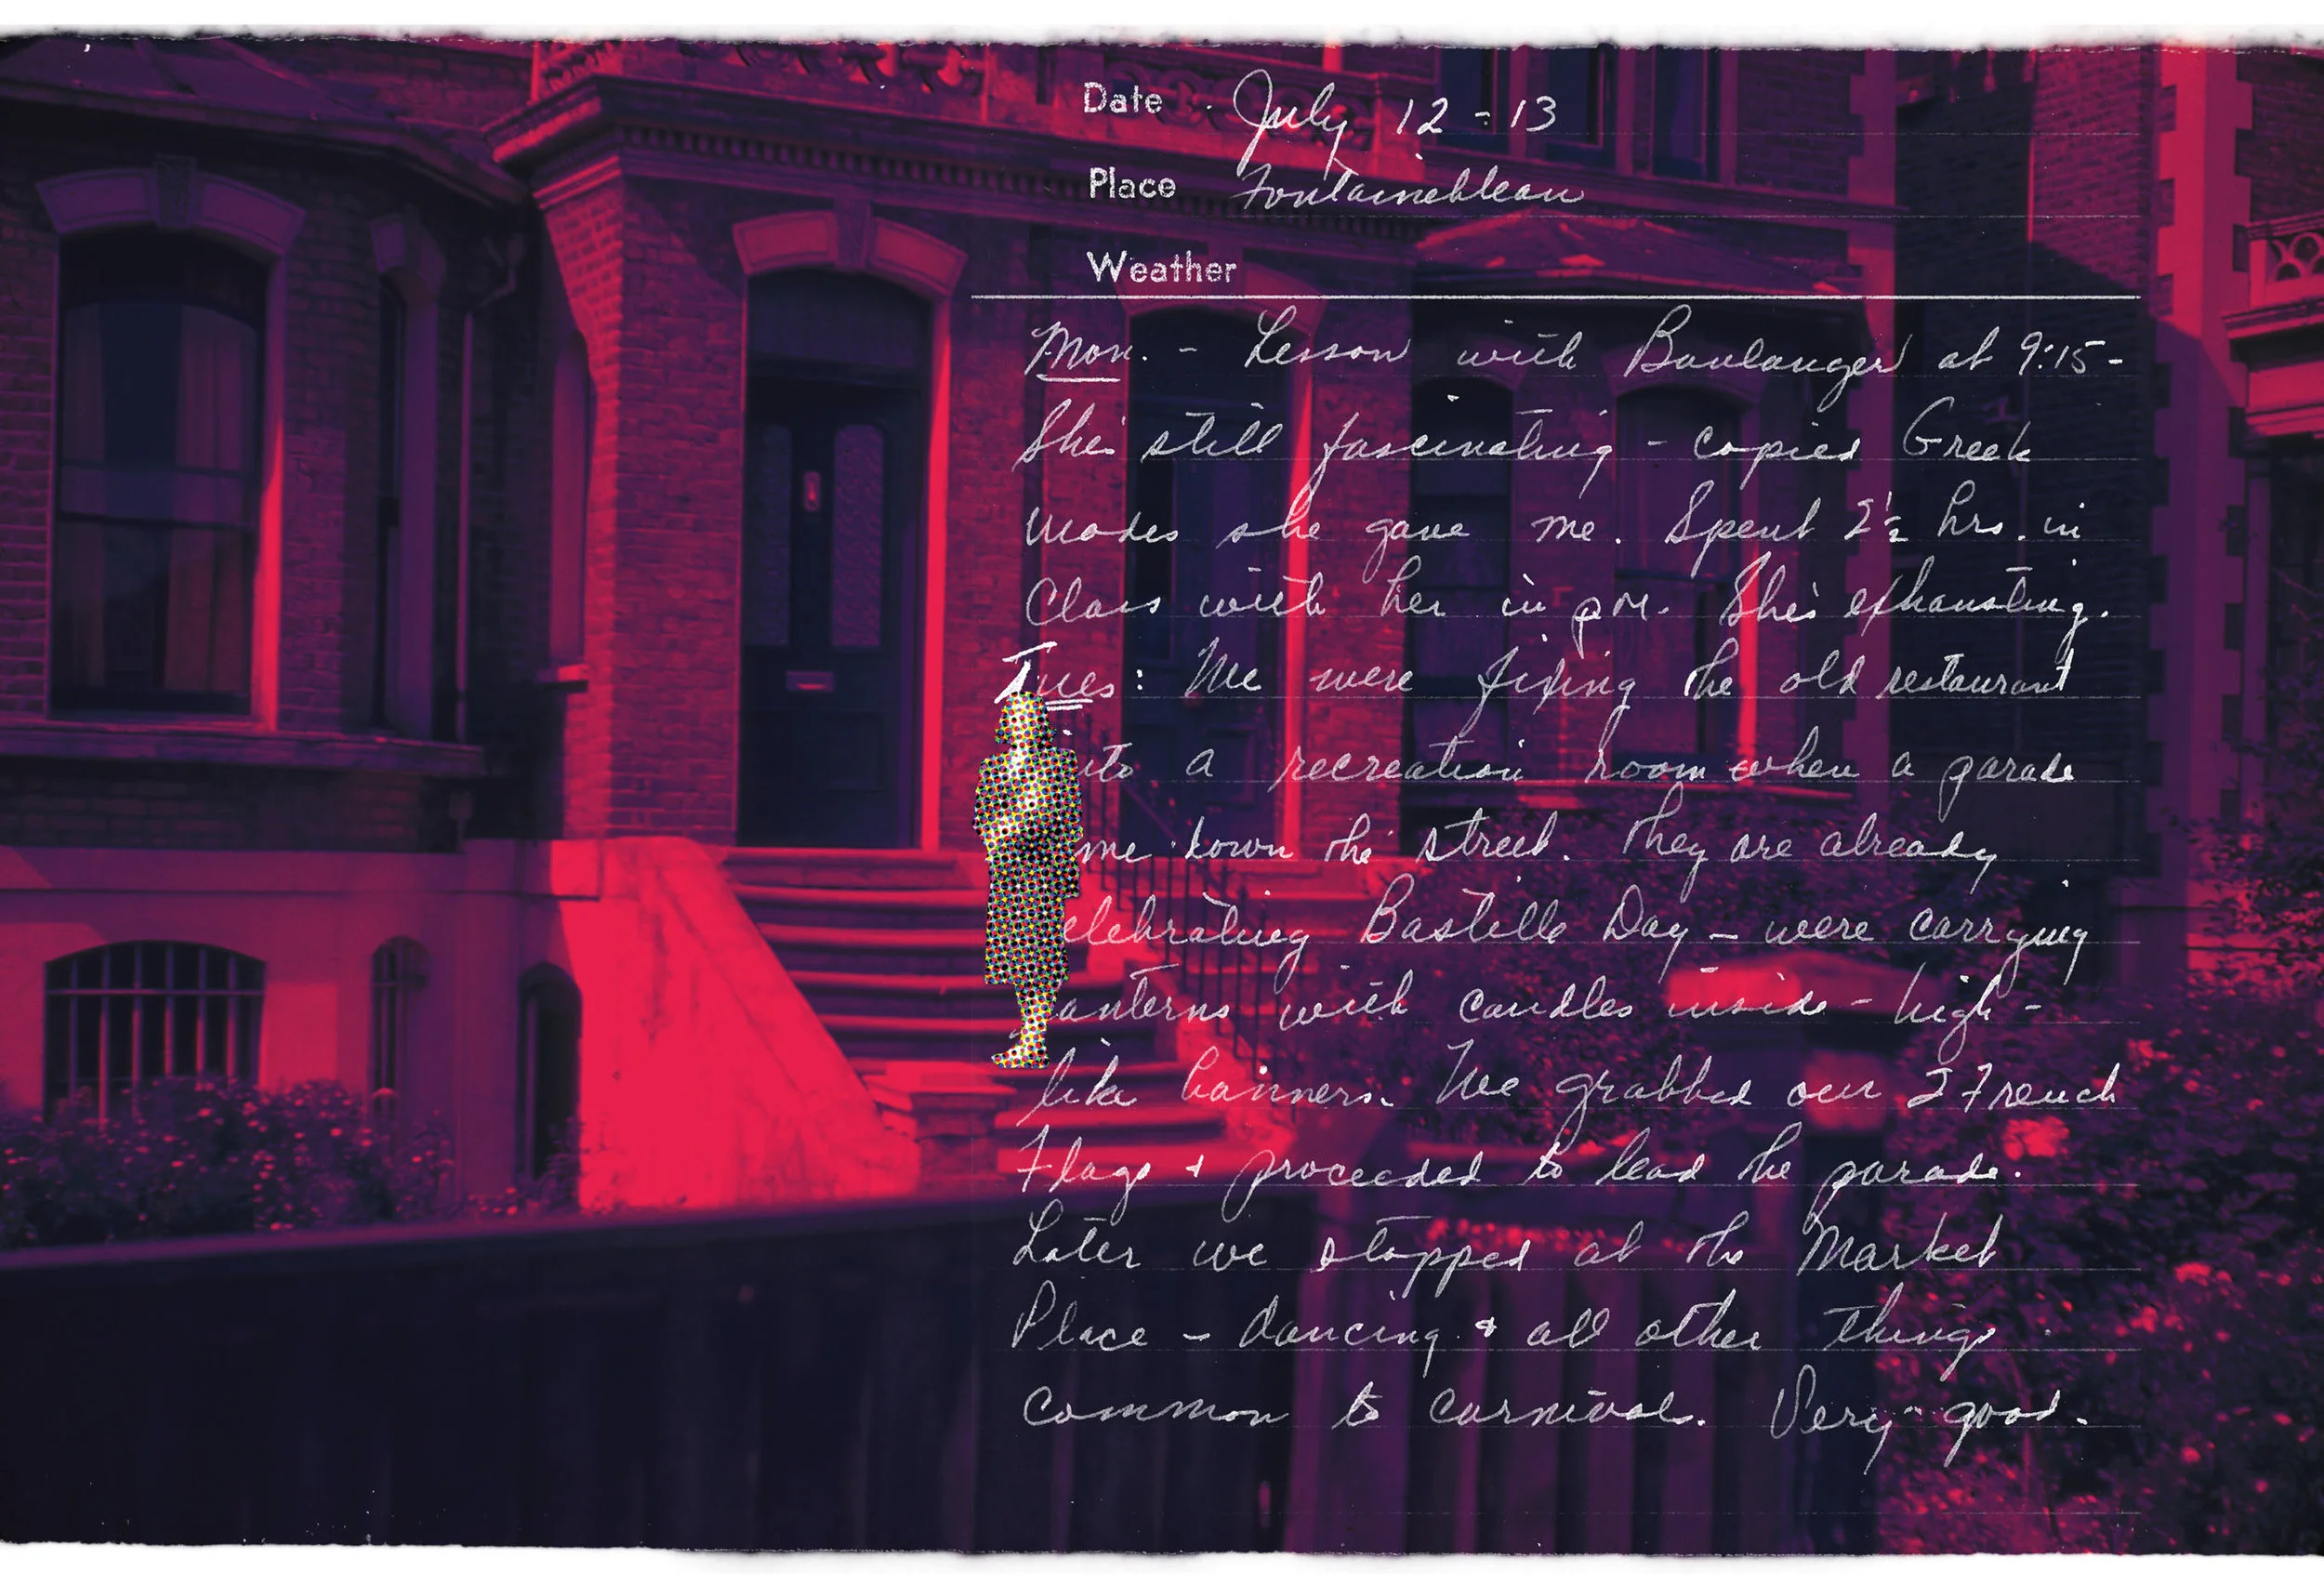 Date July 12-13
Place Fontainebleau
Weather
Mon. - Lesson with Boulanger at 9:15-
She's still fascinating - copied Greek
modes she gave me. Spent 2½ hrs. in
Class with her in p.m. She's exhausting.
Tues: We were fixing the old restaurant
into a recreation room when a parade
me down the street. They are already
elebrating Bastille Day - were carrying
anterns with candles inside - high -
like banners. We grabbed our 2 French
Flags + proceeded to lead the parade.
Later we stopped at the Market
Place - dancing & all other things
common to carnivals. Very good.